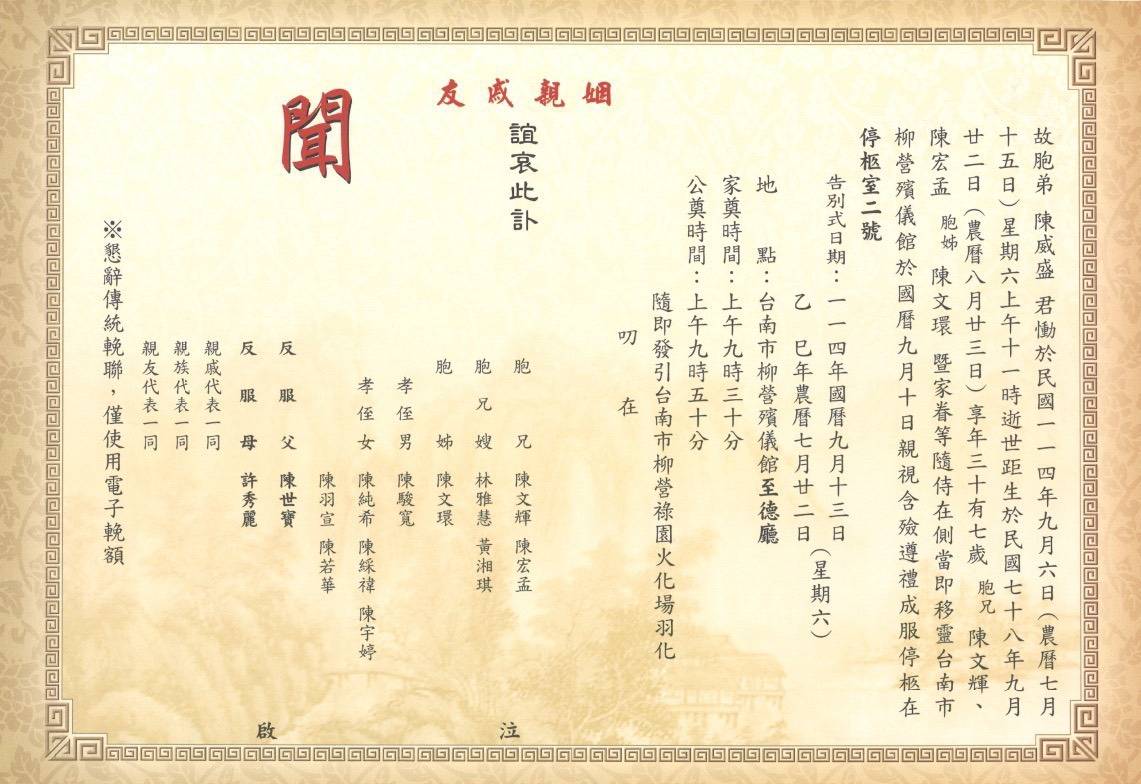 故胞弟 陳威盛 君慟於民國一一四年九月六日（農曆七月
十五日）星期六上午十一時逝世距生於民國七十八年九月
廿二日（農曆八月廿三日）享年三十有七歲 胞兄 陳文輝、
陳宏孟 胞姊 陳文環 暨家眷等隨侍在側當即移靈台南市
柳營殯儀館於國曆九月十日親視含殮遵禮成服停柩在
停柩室二號
告別式日期：一一四年國曆九月十三日
乙巳年農曆七月廿二日（星期六）
地點：台南市柳營殯儀館至德廳
家奠時間：上午九時三十分
公奠時間：上午九時五十分
隨即發引台南市柳營祿園火化場羽化
叨在
姻親戚友
誼哀此訃
聞
胞兄 陳文輝 陳宏孟
胞兄嫂 林雅慧 黃湘琪
胞姊 陳文環
孝侄男 陳駿寬
孝侄女 陳純希 陳綵禕 陳宇婷
陳羽宣 陳若華
反服父 陳世寶
反服母 許秀麗
親戚代表一同
親族代表一同
親友代表一同
泣
啟
※懇辭傳統輓聯，僅使用電子輓額